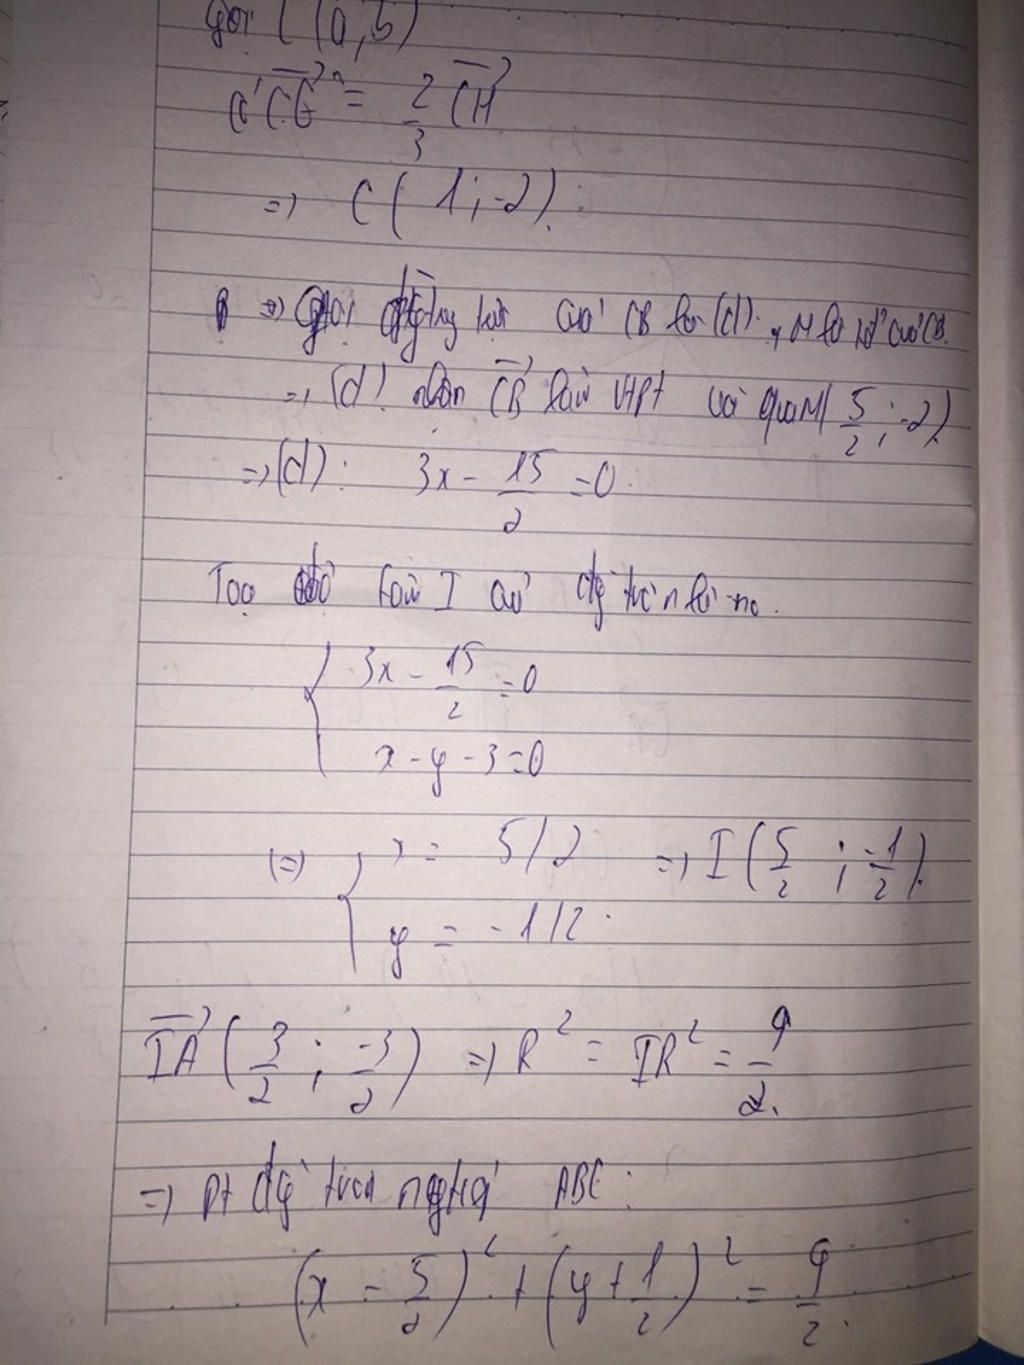 Gọi C(a,b)
có CG = 2/3 CH
=> C(1; -2).
=> Gọi đg trung trực của CB là (d). M là tđ của CB.
=> (d) nhận CB làm VTPT và qua M(5/2; -2).
=> (d): 3x - 15/2 = 0.
Toạ độ tâm I của đg tròn là no.
{ 3x - 15/2 = 0
x - y - 3 = 0
(=) { x = 5/2 => I(5/2; -1/2).
y = -1/2.
IA(3/2; -3/2) => R² = IR² = 9/2.
=> Pt đg tròn ngtiếp ABC:
(x - 5/2)² + (y + 1/2)² = 9/2.